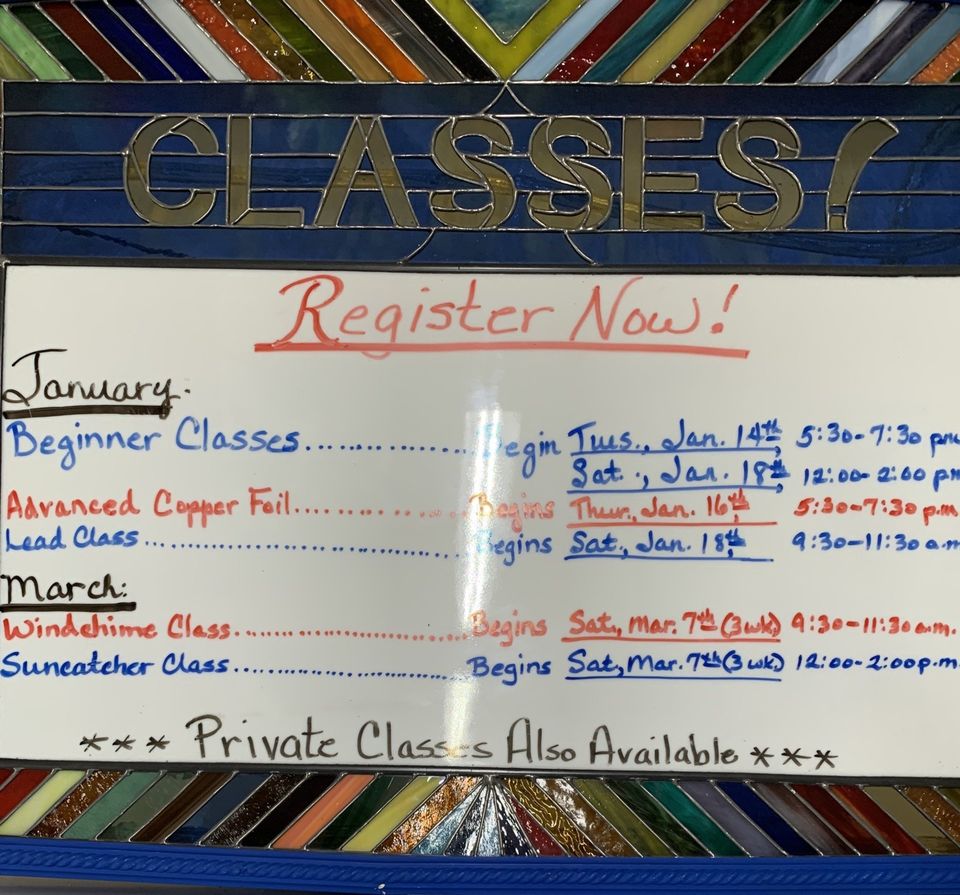 CLASSES!
Register Now!
January:
Beginner Classes.................. Begin Tues., Jan. 14th, 5:30-7:30 pm
Sat., Jan. 18th, 12:00-2:00 pm
Advanced Copper Foil................ Begins Thur., Jan. 16th, 5:30-7:30 p.m
Lead Class.............................. Begins Sat., Jan. 18th, 9:30-11:30 a.m
March:
Windchime Class........................... Begins Sat., Mar. 7th (3wk) 9:30-11:30 a.m.
Suncatcher Class........................... Begins Sat., Mar. 7th (3wk.) 12:00-2:00 p.m.
*** Private Classes Also Available ***